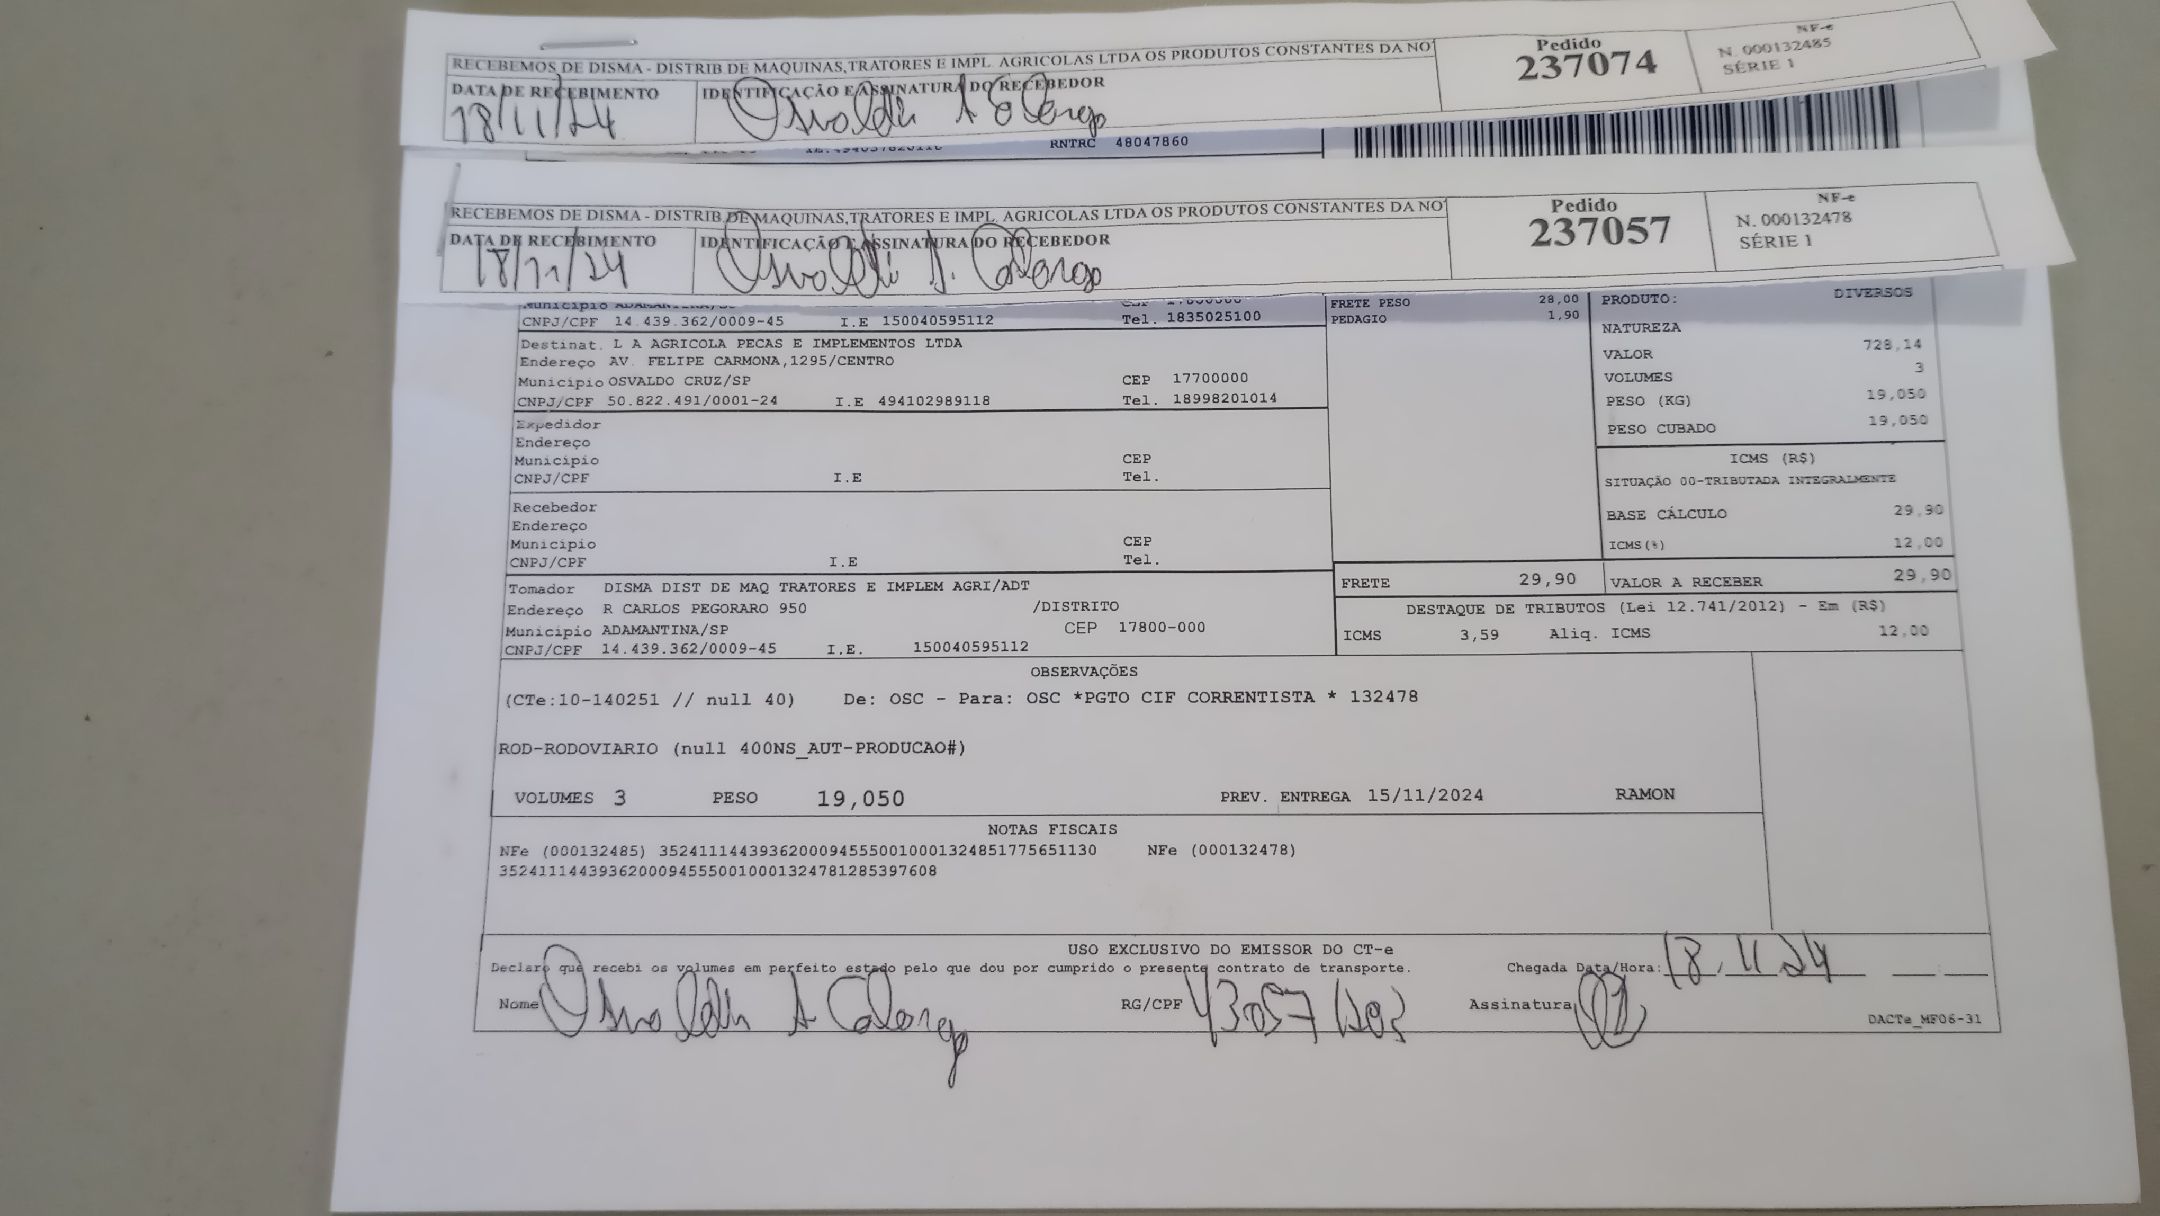 RECEBEMOS DE DISMA - DISTRIB DE MAQUINAS,TRATORES E IMPL. AGRICOLAS LTDA OS PRODUTOS CONSTANTES DA NO
Pedido
237074
NF-e
N. 000132485
SÉRIE 1
DATA DE RECEBIMENTO
IDENTIFICAÇÃO E ASSINATURA DO RECEBEDOR
18/11/24
RNTRC 48047860
RECEBEMOS DE DISMA - DISTRIB.DE MAQUINAS,TRATORES E IMPL. AGRICOLAS LTDA OS PRODUTOS CONSTANTES DA NO
Pedido
237057
NF-e
N. 000132478
SÉRIE 1
DATA DE RECEBIMENTO
IDENTIFICAÇÃO E ASSINATURA DO RECEBEDOR
18/11/24
Municipio
CNPJ/CPF 14.439.362/0009-45 I.E 150040595112 Tel. 1835025100
Destinat. L A AGRICOLA PECAS E IMPLEMENTOS LTDA
Endereço AV. FELIPE CARMONA,1295/CENTRO
Municipio OSVALDO CRUZ/SP CEP 17700000
CNPJ/CPF 50.822.491/0001-24 I.E 494102989118 Tel. 18998201014
Expedidor
Endereço
Municipio CEP
CNPJ/CPF I.E Tel.
Recebedor
Endereço
Municipio CEP
CNPJ/CPF I.E Tel.
Tomador DISMA DIST DE MAQ TRATORES E IMPLEM AGRI/ADT
Endereço R CARLOS PEGORARO 950 /DISTRITO
Municipio ADAMANTINA/SP CEP 17800-000
CNPJ/CPF 14.439.362/0009-45 I.E. 150040595112
FRETE PESO 28,00
PEDAGIO 1,90
PRODUTO: DIVERSOS
NATUREZA
VALOR 728,14
VOLUMES 3
PESO (KG) 19,050
PESO CUBADO 19,050
ICMS (R$)
SITUAÇÃO 00-TRIBUTADA INTEGRALMENTE
BASE CÁLCULO 29,90
ICMS(%) 12,00
FRETE 29,90 VALOR A RECEBER 29,90
DESTAQUE DE TRIBUTOS (Lei 12.741/2012) - Em (R$)
ICMS 3,59 Aliq. ICMS 12,00
OBSERVAÇÕES
(CTe:10-140251 // null 40) De: OSC - Para: OSC *PGTO CIF CORRENTISTA * 132478
ROD-RODOVIARIO (null 400NS_AUT-PRODUCAO#)
VOLUMES 3 PESO 19,050 PREV. ENTREGA 15/11/2024 RAMON
NOTAS FISCAIS
NFe (000132485) 35241114439362000945550010001324851775651130 NFe (000132478)
35241114439362000945550010001324781285397608
USO EXCLUSIVO DO EMISSOR DO CT-e
Declaro que recebi os volumes em perfeito estado pelo que dou por cumprido o presente contrato de transporte. Chegada Data/Hora: 18.11.24
Nome RG/CPF Assinatura
DACTe_MF06-31